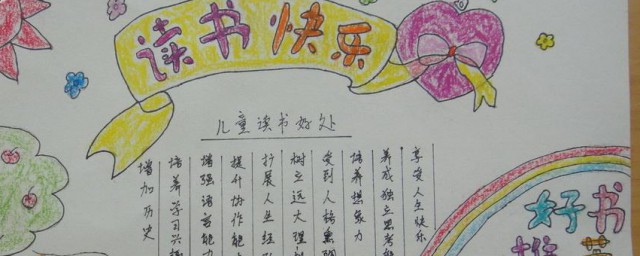 读书快乐
儿童读书好处
享受人生快乐
养成独立思考能
培养想象力
受到人格熏陶
树立远大理
扩展人生经
提升协作能
增强语言能力
培养学习兴趣
增加历史
好书
推荐